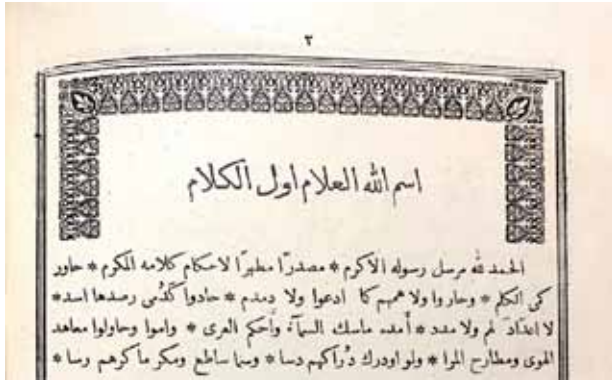 ٢
اسم الله العلام اول الكلام
الحمد لله مرسل رسوله الاكرم * مصدرا مطهرا لاحكام كلامه المكرم * حاور
كى الكلم * وحاروا ولا همهم كما ادعوا ولا دمدم * حادوا كذمى رصدها اسد *
لا اعداد لم ولا مدد * أمده ماسك السمآء وأحكم العرى * واموا وحاولوا معاهد
الهوى ومطارح المرا * ولو اودرك دراكهم دسا * وسما ساطع ومكر ماكرهم رسا *